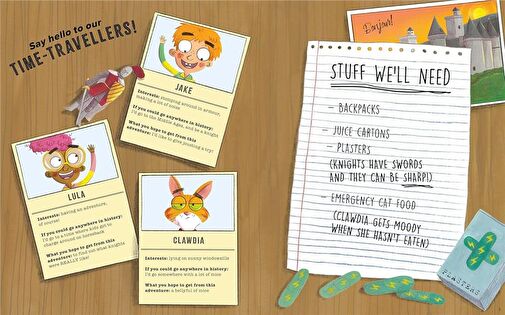 Say hello to our
TIME-TRAVELLERS!
JAKE
Interests: stomping around in armour,
making a lot of noise
If you could go anywhere in history:
I'd go to the Middle Ages, and be a knight
What you hope to get from this
adventure: I'd like to give jousting a try!
LULA
Interests: having an adventure,
of course!
If you could go anywhere in history:
I'd go to a time where kids get to
charge around on horseback
What you hope to get from this
adventure: to find out what knights
were REALLY like!
CLAWDIA
Interests: lying on sunny windowsills
If you could go anywhere in history:
I'd go somewhere with a lot of mice
What you hope to get from this
adventure: a bellyful of mice
Bonjour!
STUFF WE'LL NEED
- BACKPACKS
- JUICE CARTONS
- PLASTERS
(KNIGHTS HAVE SWORDS
AND THEY CAN BE SHARP!)
- EMERGENCY CAT FOOD
(CLAWDIA GETS MOODY
WHEN SHE HASN'T EATEN)
PLASTERS